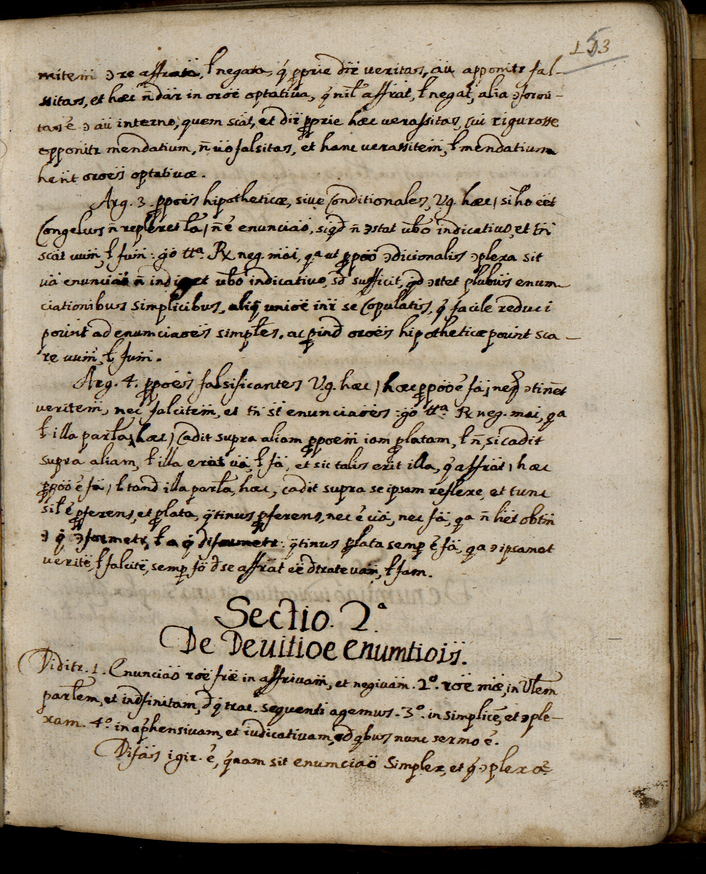 153
mitem̄ ɔ re affrata, ł negata, q́ p̱prie dīr veritas, cui apponitr fal-
sitas, et hæc n̄ dār in orōe optativa, q́ nil affrat, ł negat, alia ɔformi-
tas ē ɔ aū interno, quem scāt, et dīr p̱prie hæc verassitas, cui rigurosse
opponitr mendatium, n̄ vo falsitas, et hanc verassitem̄, ł mendatium
hen̄t oroēs optativæ.
Arg. 3. p̱poēs hipotheticæ, sive Conditionales, Vg. hæc, si ho eēt
Congelus n̄ repleret
scāt vum̄, ł fum̄: go ttᵃ. R neg. mai, qa ut p̱poō ɔdicionalis ɔplexa sit
va enunciaō n̄ indiget vbo indicativo, sd sufficit, qd ɔstet plubus enun-
ciationibus simplicibus, aliq unioē inr se Copulatis, q́ facile reduci
poūnt ad enunciaoēs simples, ac p̱ind oroēs hipotheticæ poūnt sca-
re vum̄, ł fum̄.
Arg. 4. p̱poēs falsificantes Vg. hæc, hæc p̱poō ē fā, neq ɔtinēt
veritem̄, nec falcitem̄, et tn̄ st enunciaoēs: go ttᵃ. R neg. mai, qa
ł illa parła, hæc, Cadit supra aliam p̱poem̄ iam p̱latam, ł n̄, si cadit
supra aliam, ł illa erat vā, ł fā, et sic talis erit illa, q́ affrat, hæc
p̱poō ē fā, ł tand illa parła, hæc, cadit supra se ipsam reflexe, et tunc
sił ē p̱ferens, et p̱lata, q́tinus p̱ferens, nec ē vā, nec fā, qa n̄ het obtm̄
ɔ q́ ɔformetr, ł a q́ difformetr: q́tinus p̱lata semp̱ ē fā, qa ɔ ipsa nat
verite, ł falcite, semp̱ fō d se affrat eē dtrate vam̄, ł fam.
Sectio. 2ᵃ
De Devitioe enumtiois.
Viditr. 1. Enunciaō roē frē in affrivam̄, et negivam̄. 2º. roē mæ, in Ulem
parlem, et indfinitam, d q́ trac. sequenti agemus. 3º. in simplicē, et ɔple-
xam. 4º. in aphensivam, et iudicativam, d qbus nunc sermo ē.
Difās igir. ē, q́nam sit enunciaō Simplex, et q́ ɔplexa